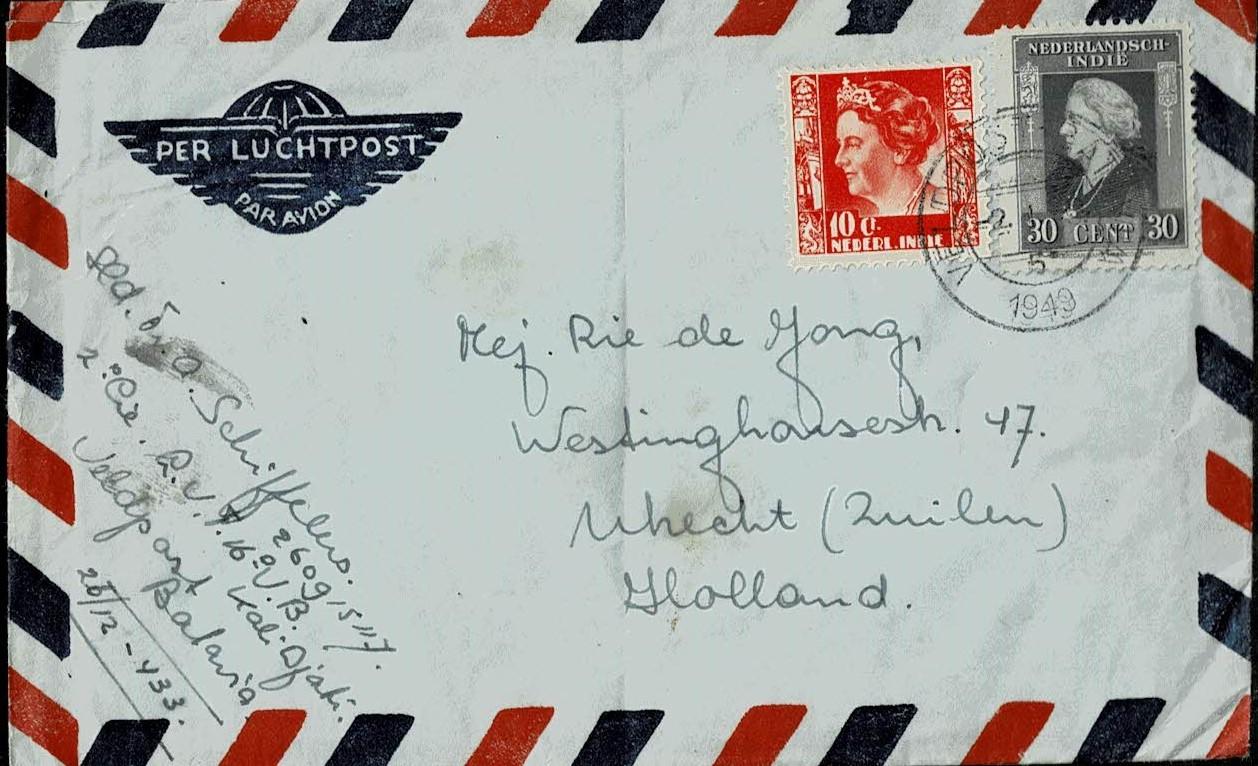 PER LUCHTPOST
PAR AVION
10 ct.
NEDERL. INDIE
NEDERLANDSCH-
INDIË
30 CENT 30
1949
Mej. Rie de Jong,
Westinghousestr. 47.
Utrecht (Zuilen)
Holland.
Sld. A. Schiffelers.
2609 15 117.
2e Cie. 16e V.B.
Kali Djati.
Veldpost Batavia
28/12 - 433.